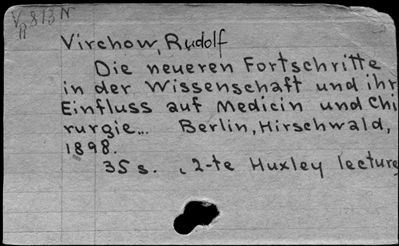 V 813 N
R
Virchow, Rudolf
Die neueren Fortschritte
in der Wissenschaft und ihr
Einfluss auf Medicin und Chi
rurgie... Berlin, Hirschwald,
1898.
35 s. 2-te Huxley lecture